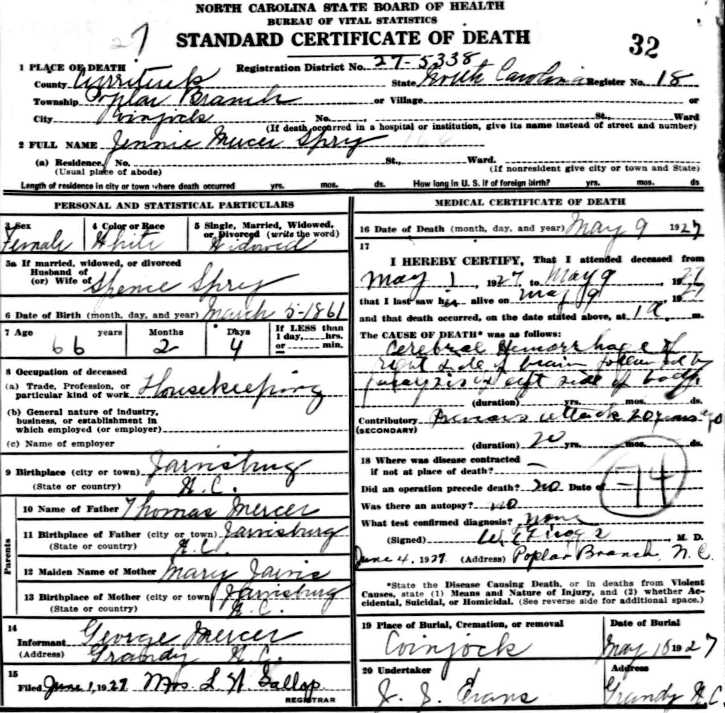 NORTH CAROLINA STATE BOARD OF HEALTH
BUREAU OF VITAL STATISTICS
27 STANDARD CERTIFICATE OF DEATH 32
1 PLACE OF DEATH Registration District No. 27-5338
County Currituck State North Carolina Register No. 18
Township Poplar Branch or Village or
City Coinjock No. St., Ward
(If death occurred in a hospital or institution, give its name instead of street and number)
2 FULL NAME Jennie Mercer Spry
(a) Residence, No. St., Ward.
(Usual place of abode) (If nonresident give city or town and State)
Length of residence in city or town where death occurred yrs. mos. ds. How long in U. S. if of foreign birth? yrs. mos. ds.
PERSONAL AND STATISTICAL PARTICULARS
3 Sex 4 Color or Race 5 Single, Married, Widowed, or Divorced (write the word)
Female White Widowed
5a If married, widowed, or divorced
Husband of
(or) Wife of Spence Spry
6 Date of Birth (month, day, and year) March 5-1861
7 Age years Months Days If LESS than 1 day, hrs. or min.
66 2 4
8 Occupation of deceased
(a) Trade, Profession, or particular kind of work Housekeeping
(b) General nature of industry, business, or establishment in which employed (or employer)
(c) Name of employer
9 Birthplace (city or town) Jarvisburg
(State or country) N.C.
Parents
10 Name of Father Thomas Mercer
11 Birthplace of Father (city or town) Jarvisburg
(State or country) N.C.
12 Maiden Name of Mother Mary Jarvis
13 Birthplace of Mother (city or town) Jarvisburg
(State or country) N.C.
14
Informant George Mercer
(Address) Grandy N.C.
15
Filed June 1, 1927 Mrs. L N Gallop
REGISTRAR
MEDICAL CERTIFICATE OF DEATH
16 Date of Death (month, day, and year) May 9 1927
17
I HEREBY CERTIFY, That I attended deceased from
May 1, 1927 to May 9, 1927
that I last saw her alive on May 9 1927
and that death occurred, on the date stated above, at 1 a m.
The CAUSE OF DEATH* was as follows:
Cerebral Hemorrhage of
right side of brain followed by
paralysis of left side of body
(duration) yrs. mos. ds.
Contributory Previous attack 20 years ago
(SECONDARY)
(duration) 20 yrs. mos. ds.
18 Where was disease contracted
if not at place of death? —
Did an operation precede death? no Date of
Was there an autopsy? no
74
What test confirmed diagnosis? none
(Signed) M. D.
June 4, 1927 (Address) Poplar Branch, N.C.
*State the Disease Causing Death, or in deaths from Violent
Causes, state (1) Means and Nature of Injury, and (2) whether Ac-
cidental, Suicidal, or Homicidal. (See reverse side for additional space.)
19 Place of Burial, Cremation, or removal Date of Burial
Coinjock May 10 1927
20 Undertaker Address
J. J. Evans Grandy N.C.